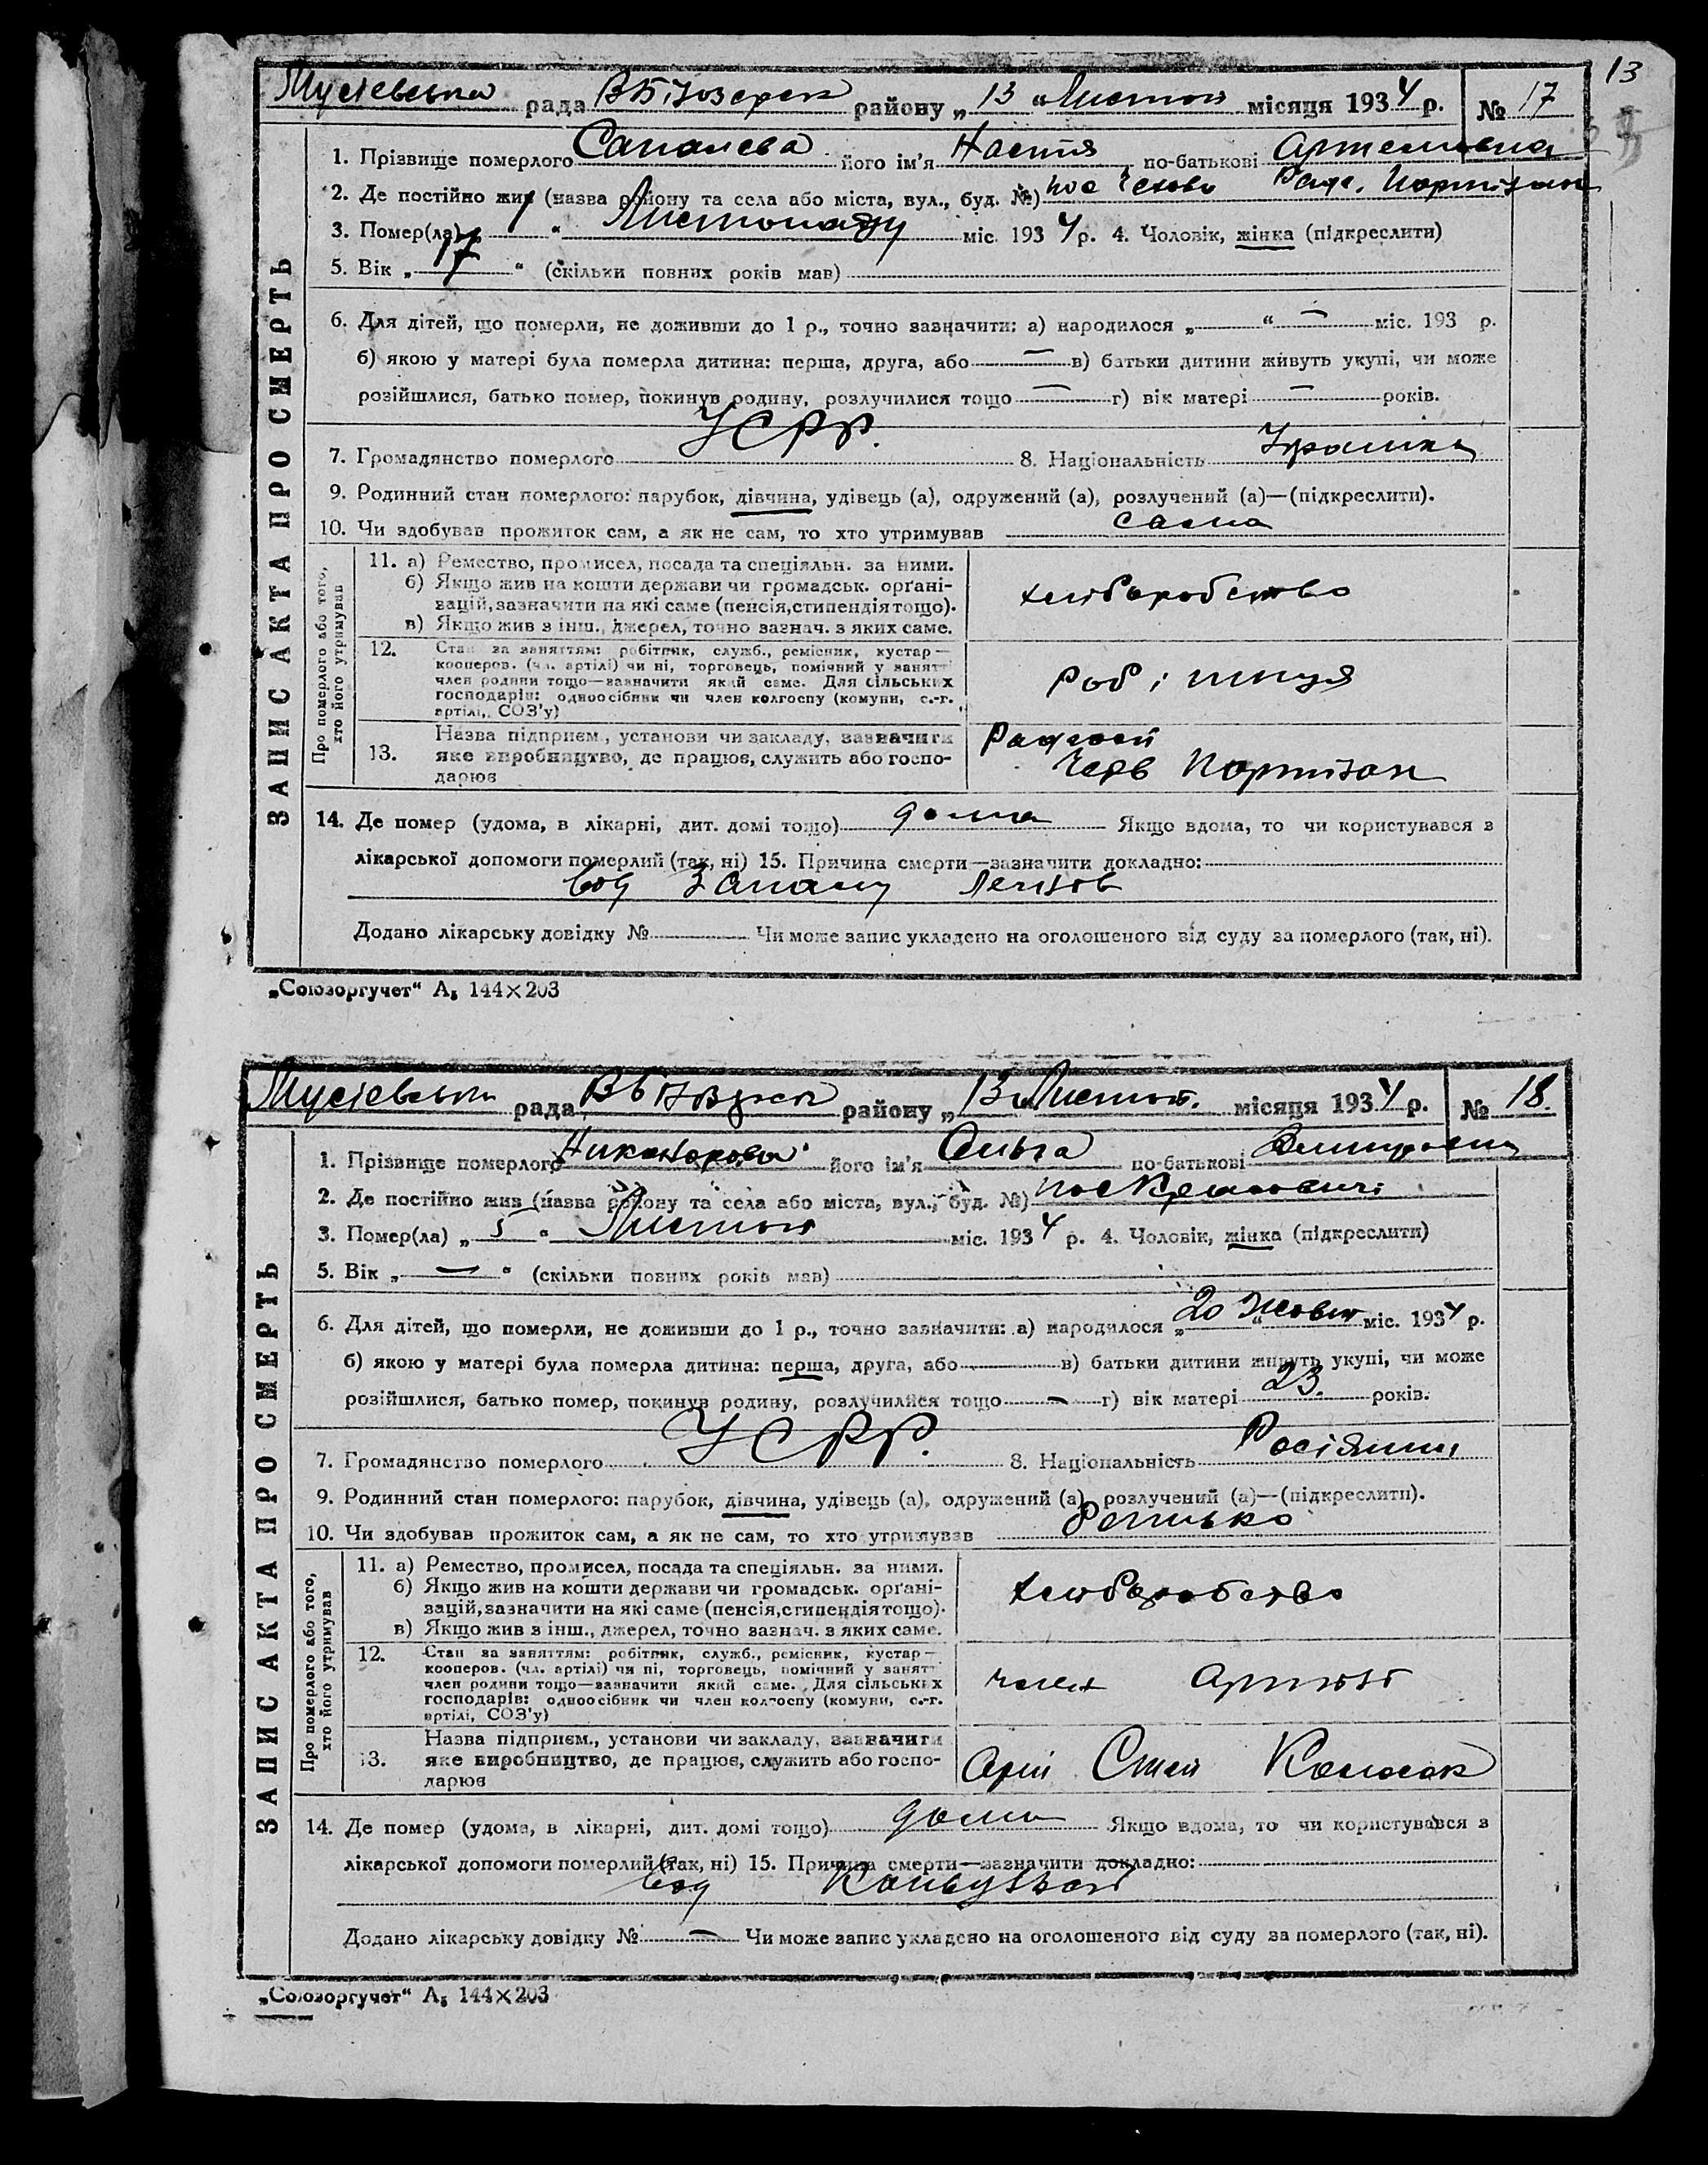 13
Мусіевська рада ВБілозерск району „ 13 “ Листоп місяця 1934 р. № 17
ЗАПИС АКТА ПРО СМЕРТЬ
1. Прізвище померлого його ім'я Настя по-батькові Артемовна
2. Де постійно жив (назва району та села або міста, вул., буд. №) пос Радг. Портізан
3. Помер(ла) „ “ Листопаду міс. 1934 р. 4. Чоловік, жінка (підкреслити)
5. Вік „ 17 “ (скільки повних років мав)
6. Для дітей, що померли, не доживши до 1 р., точно зазначити: а) народилося „ “ — міс. 193 р.
б) якою у матері була померла дитина: перша, друга, або — в) батьки дитини живуть укупі, чи може
розійшлися, батько помер, покинув родину, розлучилися тощо — г) вік матері — років.
7. Громадянство померлого УСРР. 8. Національність
9. Родинний стан померлого: парубок, дівчина, удівець (а), одружений (а), розлучений (а)—(підкреслити).
10. Чи здобував прожиток сам, а як не сам, то хто утримував сама
Про померлого або того, хто його утримував
11. а) Ремество, промисел, посада та спеціяльн. за ними.
б) Якщо жив на кошти держави чи громадськ. орґані-
зацій, зазначити на які саме (пенсія, стипендія тощо).
в) Якщо жив з інш., джерел, точно зазнач. з яких саме.
хлібаробство
12. Стан за заняттям: робітник, служб., ремісник, кустар—
кооперов. (чл. артілі) чи ні, торговець, помічний у занятті
член родини тощо—зазначити який саме. Для сільських
господарів: одноосібник чи член колгоспу (комуни, с.-г.
артілі, СОЗ'у)
робітниця
13. Назва підприєм., установи чи закладу, зазначити
яке виробництво, де працює, служить або госпо-
дарює
Радгосп
Черв Портізан
14. Де помер (удома, в лікарні, дит. домі тощо) дома Якщо вдома, то чи користувався з
лікарської допомоги померлий (так, ні) 15. Причина смерти—зазначити докладно:
вод Запалу Легков
Додано лікарську довідку № Чи може запис укладено на оголошеного від суду за померлого (так, ні).
„Союзоргучет“ А5 144×203
Мусіевська рада району „ 13 “ Листоп. місяця 1934 р. № 18.
ЗАПИС АКТА ПРО СМЕРТЬ
1. Прізвище померлого Никонорова його ім'я Ольга по-батькові
2. Де постійно жив (назва району та села або міста, вул., буд. №)
3. Помер(ла) „ 5 “ Листоп міс. 1934 р. 4. Чоловік, жінка (підкреслити)
5. Вік „ — “ (скільки повних років мав)
6. Для дітей, що померли, не доживши до 1 р., точно зазначити: а) народилося „ 20 “ Жовтн міс. 1934 р.
б) якою у матері була померла дитина: перша, друга, або в) батьки дитини живуть укупі, чи може
розійшлися, батько помер, покинув родину, розлучилися тощо — г) вік матері 23. років.
7. Громадянство померлого УСРР. 8. Національність
9. Родинний стан померлого: парубок, дівчина, удівець (а), одружений (а), розлучений (а)—(підкреслити).
10. Чи здобував прожиток сам, а як не сам, то хто утримував
Про померлого або того, хто його утримував
11. а) Ремество, промисел, посада та спеціяльн. за ними.
б) Якщо жив на кошти держави чи громадськ. орґані-
зацій, зазначити на які саме (пенсія, стипендія тощо).
в) Якщо жив з інш., джерел, точно зазнач. з яких саме.
хлібаробство
12. Стан за заняттям: робітник, служб., ремісник, кустар—
кооперов. (чл. артілі) чи ні, торговець, помічний у занятті
член родини тощо—зазначити який саме. Для сільських
господарів: одноосібник чи член колгоспу (комуни, с.-г.
артілі, СОЗ'у)
член Артілі
13. Назва підприєм., установи чи закладу, зазначити
яке виробництво, де працює, служить або госпо-
дарює
Колосок
14. Де помер (удома, в лікарні, дит. домі тощо) дома Якщо вдома, то чи користувався з
лікарської допомоги померлий (так, ні) 15. Причина смерти—зазначити докладно:
вод
Додано лікарську довідку № — Чи може запис укладено на оголошеного від суду за померлого (так, ні).
„Союзоргучет“ А5 144×203